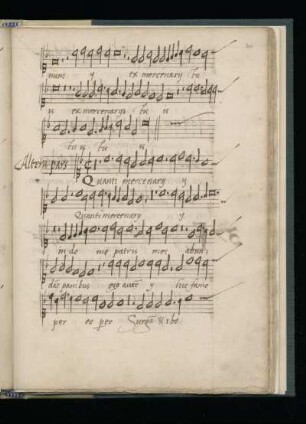 nunc y ex mercenarijs tu
is ex mercenarijs tu is
tuis tu is
Altera pars
Quanti mercenarij y
Quanti mercenarij y
in do mo patris mei abun
dāt panibus ego autē y hic fame
per eo per Surgā & ibo